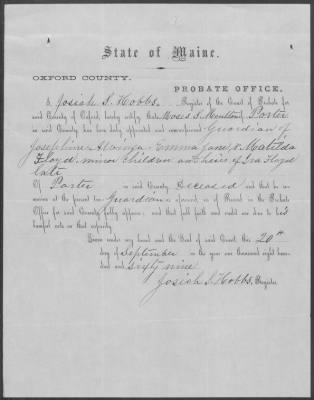 State of Maine.
OXFORD COUNTY.
PROBATE OFFICE.
I, Josiah S. Hobbs, Register of the Court of Probate for
said County of Oxford, hereby certify that Moses S. Moulton of Porter
in said County, has been duly appointed and commissioned Guardian of
Josephine, Emma Jane & Matilda
Floyd minor children and heirs of Ira Floyd
late
Of Porter in said County, Deceased and that he re-
mains at the present time Guardian as aforesaid, as of Record in the Probate
Office for said County fully appears; and that full faith and credit are due to his
acts in that capacity.
Given under my hand and the Seal of said Court, this 20th
day of September in the year one thousand eight hun-
dred and sixty nine
Josiah S. Hobbs, Register.